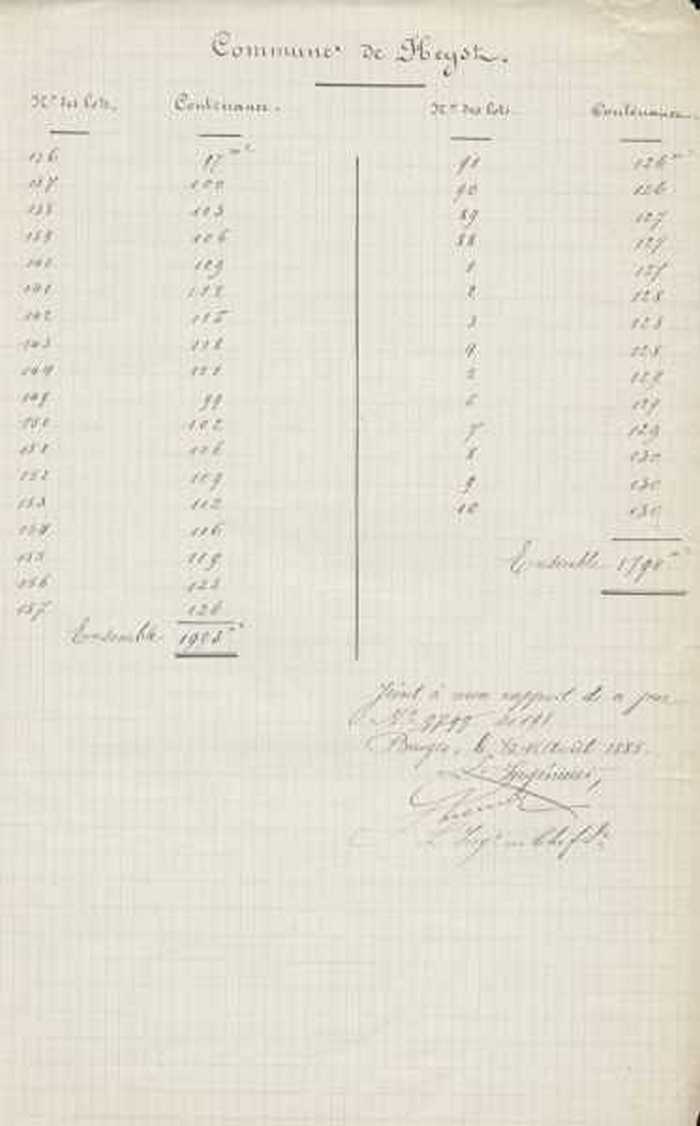 Commune de Heyst.
Nos des lots. Contenance.
136 97 m2
137 100
138 103
139 106
140 109
141 112
142 115
143 118
144 121
149 99
150 102
151 106
152 109
153 112
154 116
155 119
156 123
157 126
Ensemble
Nos des lots Contenance.
91 126 m2
90 126
89 127
88 127
1 127
2 128
3 128
4 128
5 129
6 129
7 129
8 130
9 130
10 130
Ensemble
Joint à mon rapport de ce jour
No
Bruges, le Avril 188
L'Ingénieur,